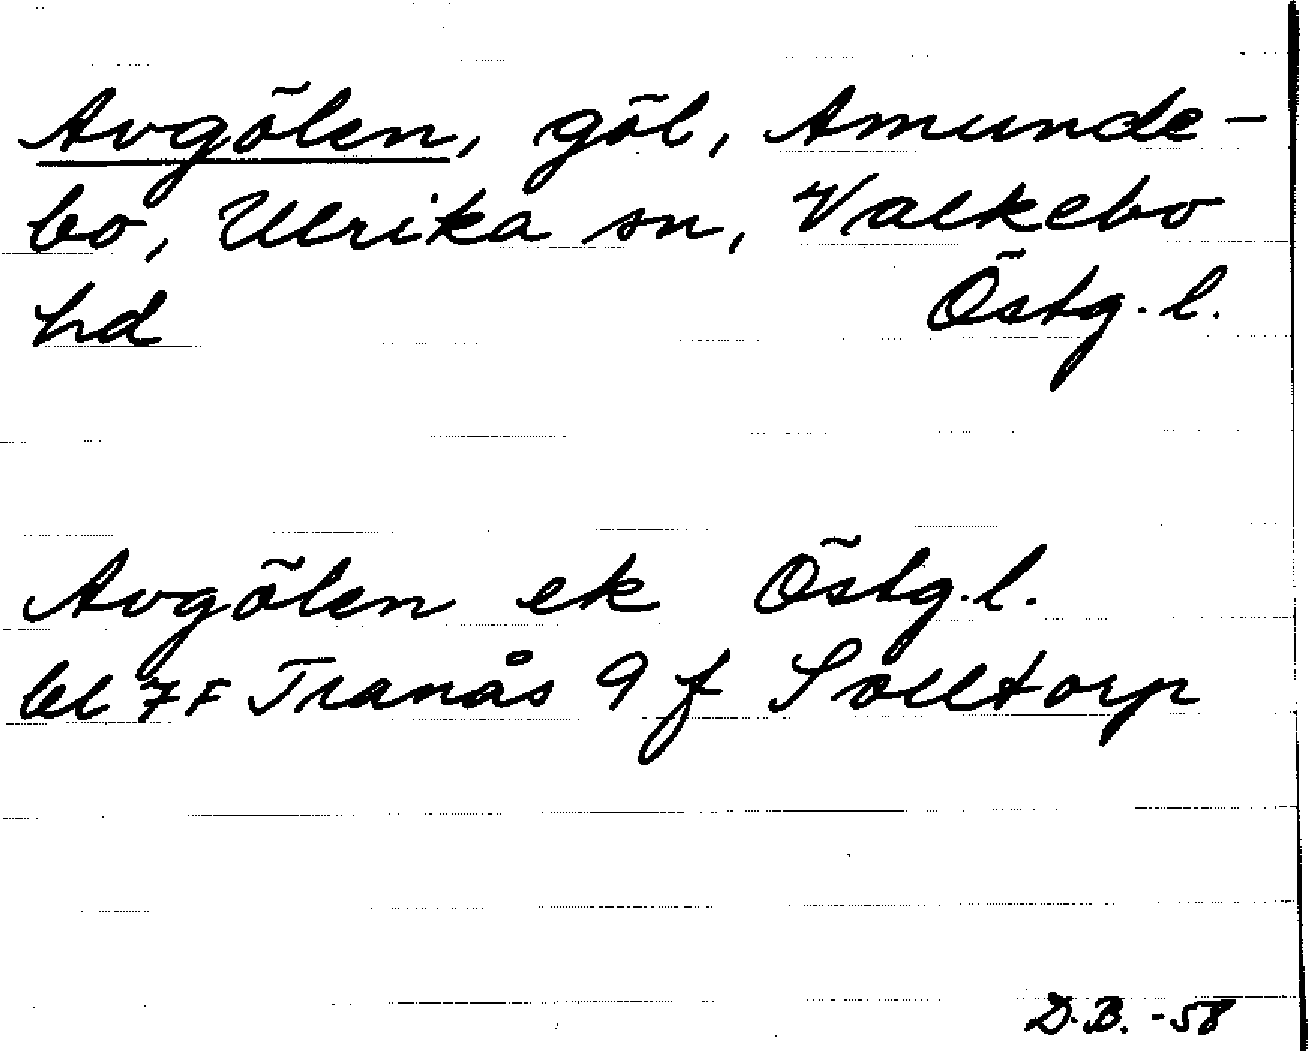 Avgölen, göl, Amunde-
bo, Ulrika sn, Valkebo
hd Östg. l.
Avgölen ek Östg. l.
bl 7F Tranås 9 f Solltorp
D.B. -58